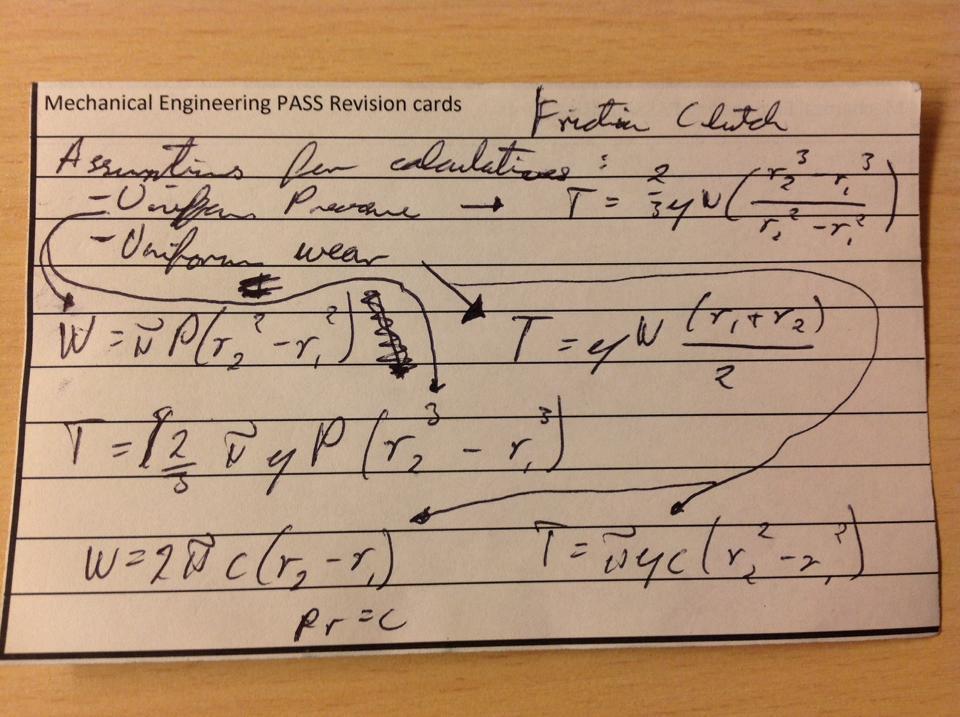 Mechanical Engineering PASS Revision cards
Friction Clutch
Assumptions for calculations :
- Uniform Pressure → T = 2/3 μ W ( (r₂³ - r₁³) / (r₂² - r₁²) )
- Uniform wear
W = π P (r₂² - r₁²)
T = μ W (r₁ + r₂) / 2
T = 2/3 π μ P (r₂³ - r₁³)
W = 2 π c (r₂ - r₁)
T = π μ c (r₂² - r₁²)
Pr = C